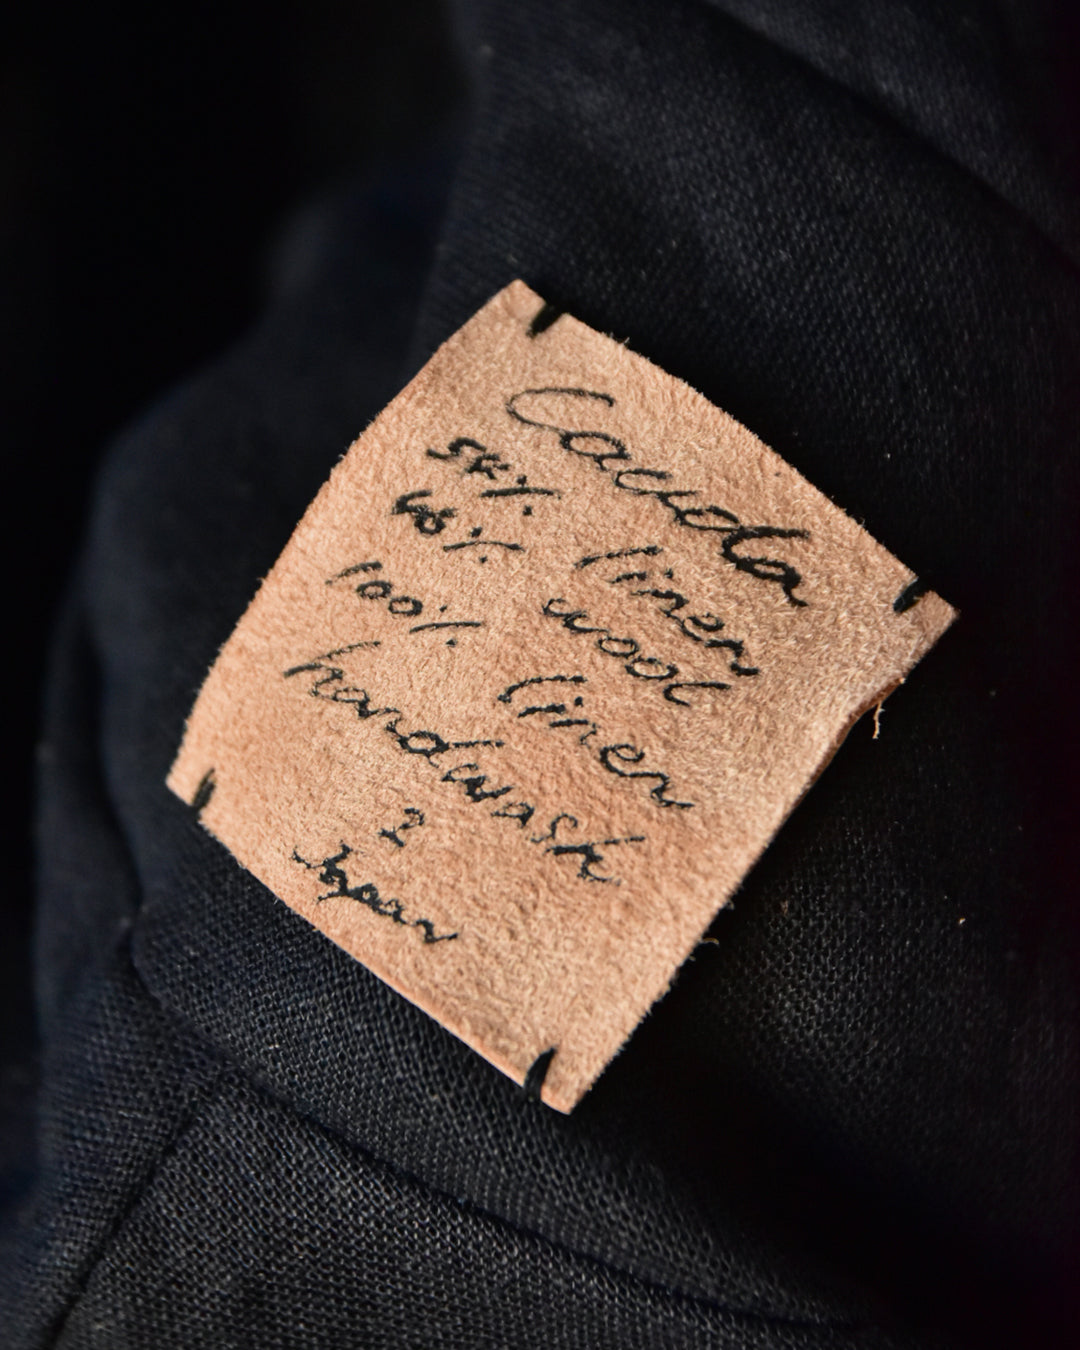 Cauda
54% linen
46% wool
100% linen
handwash
2
Japan